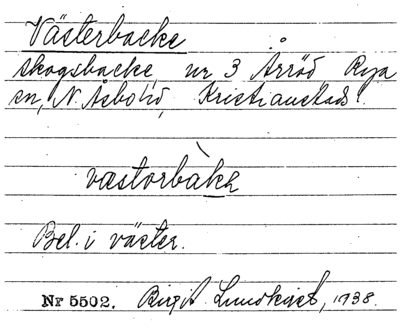 Västerbacke
skogsbacke, nr 3 Årröd, Rya
sn, N. Åsbo hd, Kristianstads l.
væstorbàkk
Bel. i väster.
Nr 5502. Birgit Lundkvist, 1938.